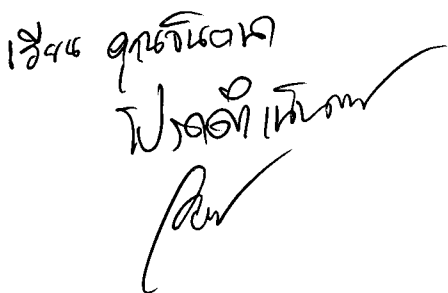 เรียน คุณจินตนา
โปรดดำเนินการ